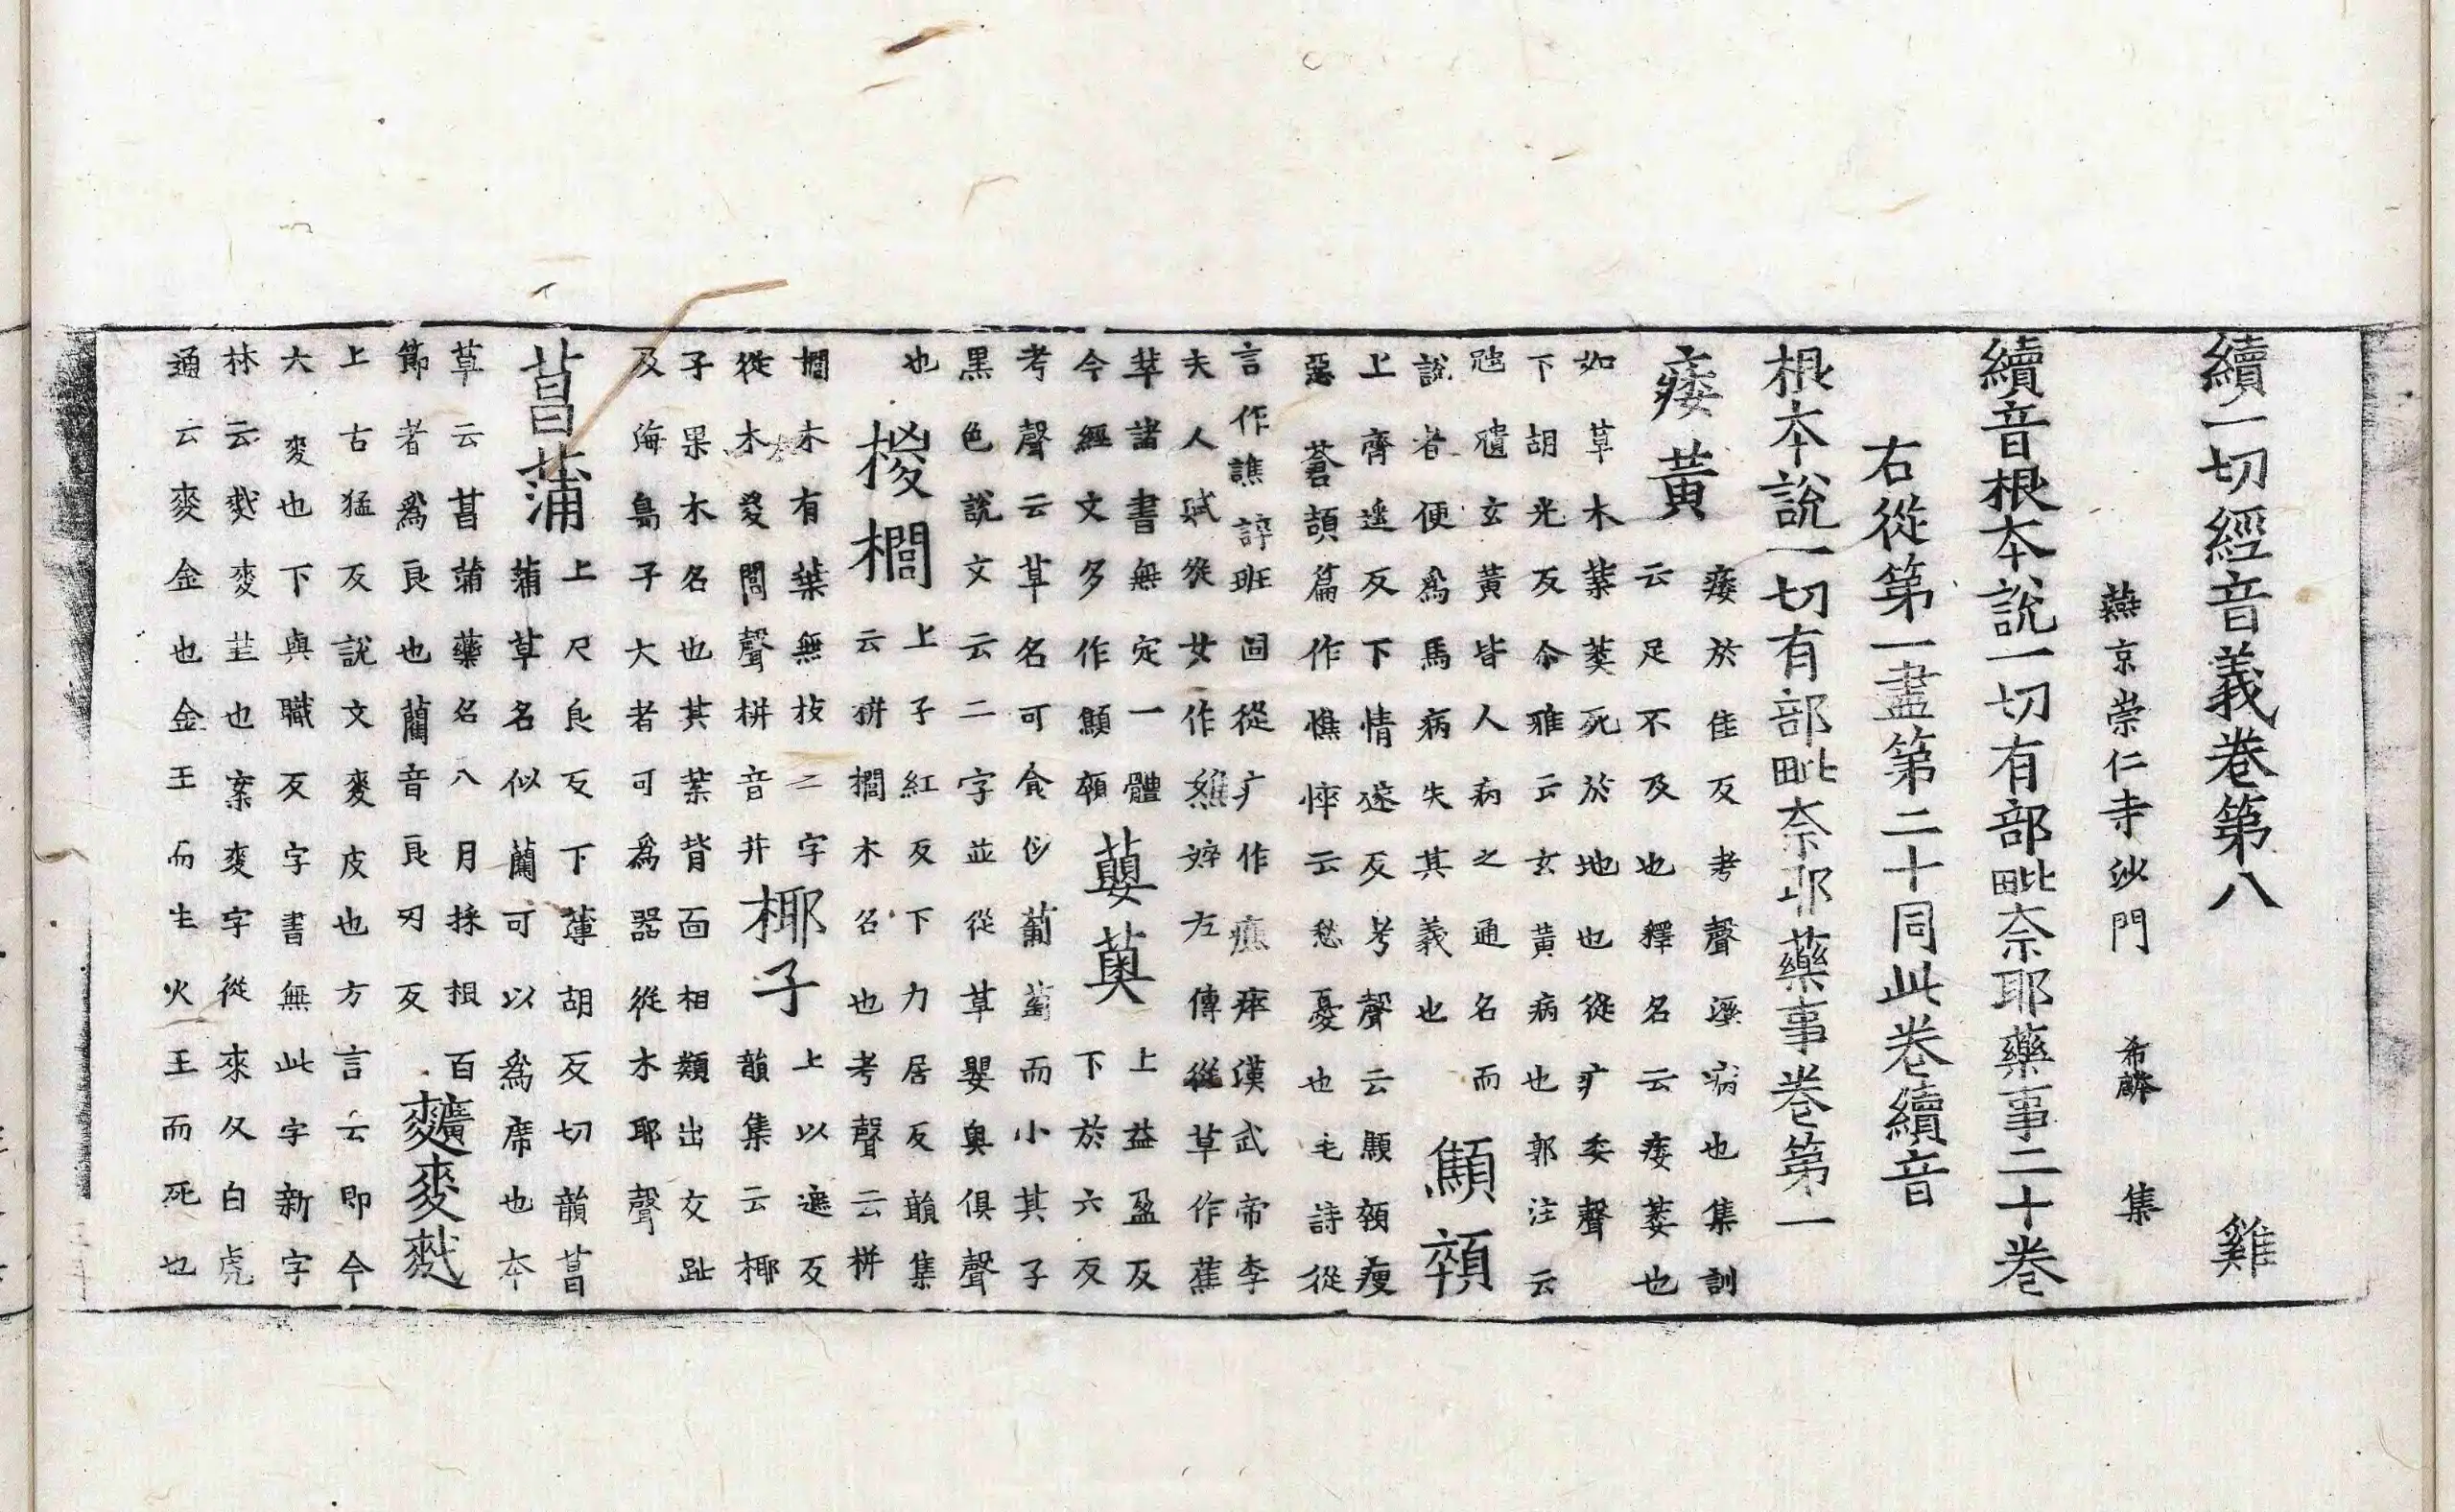 續一切經音義卷第八 雞
燕京崇仁寺沙門 希麟 集
續音根本說一切有部毗奈耶藥事二十卷
右從第一盡第二十同此卷續音
根本說一切有部毗奈耶藥事卷第一
痿黃
痿於佳反考聲濕病也集訓
云足不及也釋名云痿萎也
如草木葉萎死於地也從疒委聲
下胡光反介雅云玄黃病也郭注云
虺隤玄黃皆人病之通名而
說者便為馬病失其義也
顦顇
上齊遥反下情遂反考聲云顦顇瘦
惡蒼頡篇作憔悴云愁憂也毛詩從
言作譙誶班固從疒作癄瘁漢武帝李
夫人賦從女作嫶㛮左傳從草作蕉
萃諸書無定一體
今經文多作顦顇
蘡薁
上益盈反
下於六反
考聲云草名可食似葡萄而小其子
黑色說文云二字並從草嬰奥俱聲
也
椶櫚
上子紅反下力居反韻集
云栟櫚木名也考聲云栟
櫚木有葉無枝二字
從木㚇閭聲栟音并
椰子
上以遮反
韻集云椰
子果木名也其葉背面相類出交趾
及海島子大者可為器從木耶聲
菖蒲
上尺良反下薄胡反切韻菖
蒲草名似藺可以為席也本
草云菖蒲藥名八月採根百
節者為良也藺音良刃反
䵃麥𪌭
上古猛反說文麥皮也方言云即今
大麥也下與職反字書無此字新字
林云𪌭麥䴰也案麥字從來夂白虎
通云麥金也金王而生火王而死也